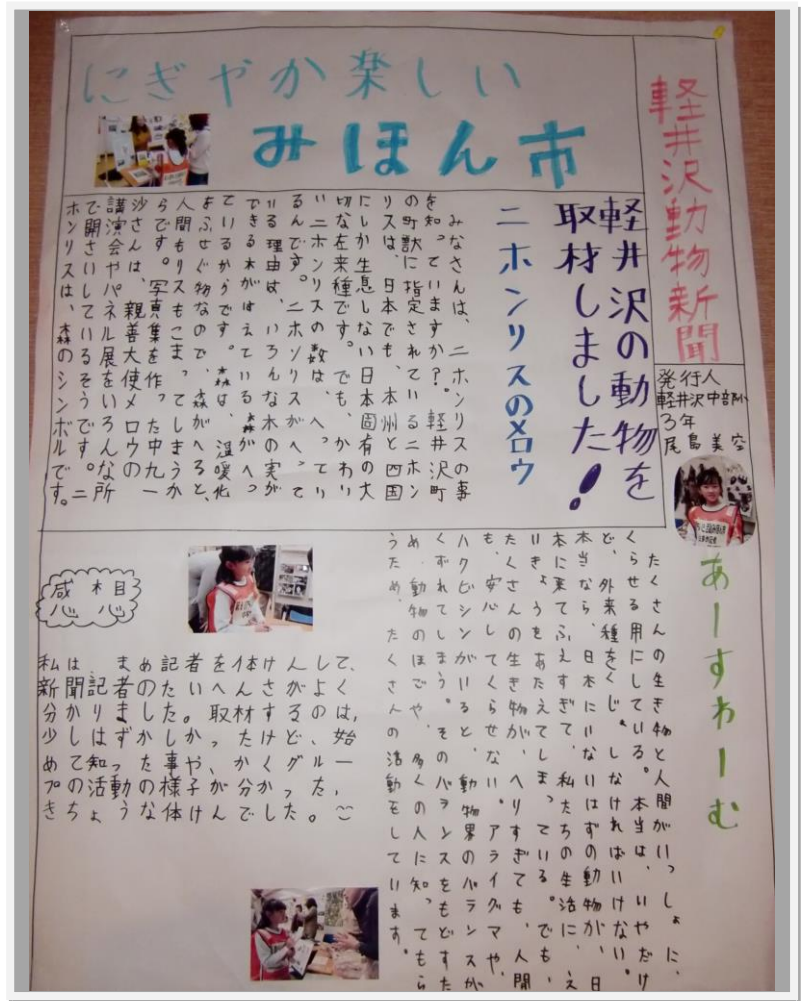 軽井沢動物新聞
発行人
軽井沢中部小
3年
尾島美空
にぎやか楽しい
みほん市
軽井沢の動物を
取材しました!
ニホンリスのメロウ
みなさんは、ニホンリスの事
を知っていますか?。軽井沢町
の町獣に指定されているニホン
リスは、日本でも、本州と四国
にしか生息しない日本固有の大
切な在来種です。でも、かわい
いニホンリスの数は、へってい
るんです。ニホンリスがへって
いる理由は、いろんな木の実が
できる木がはえている森がへっ
ているからです。森は、温暖化
をふせぐ物なので、森がへると、
人間もリスもこまってしまうか
らです。写真集を作った中九一
沙さんは、親善大使メロウの
講演会やパネル展をいろんな所
で開さいしているそうです。ニ
ホンリスは、森のシンボルです。
あーすわーむ
たくさんの生き物と人間がいっしょに、
くらせる用にしている。本当は、いやだけ
ど、外来種をくじょしなければいけない。
本当なら、日本にいないはずの動物が、日
本に来てふえすぎて、私たちの生活に、え
いきょうをあたえてしまっている。でも、
たくさんの生き物が、へりすぎても、人間
も、安心してくらせない。アライグマや、
ハクビシンがいると、動物界のバランスが
くずれてしまう。そのバランスをもどすた
め、動物のほごや、多くの人に知ってもら
うため、たくさんの活動をしています。
感想
私は、まめ記者を体けんして、
新聞記者のたいへんさがよく
分かりました。取材するのは、
少しはずかしかったけど、始
めて知った事や、かくグルー
プの活動の様子が分かった、
きちょうな体けんでした。